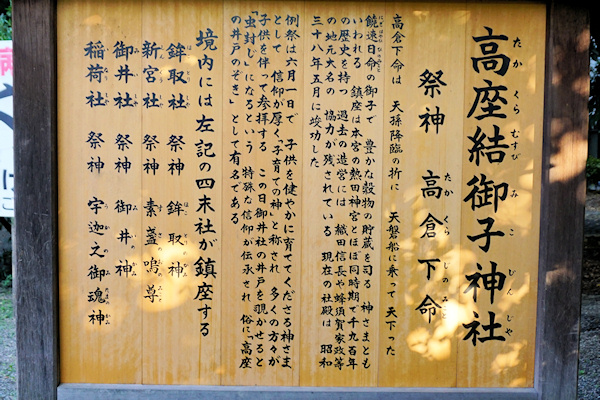 高座結御子神社
たか くら むすび み こ じん じや
祭神 高倉下命
たか くら じのみこと
高倉下命は 天孫降臨の折に 天磐船に乗って 天下った
饒速日命の御子で 豊かな穀物の貯蔵を司る 神さまとも
いわれる 鎮座は本宮の熱田神宮とほぼ同時期で千九百年
の歴史を持つ 過去の造営には 織田信長や蜂須賀家政等
の地元大名の 協力が残されている 現在の社殿は 昭和
三十八年五月に竣功した
例祭は六月一日で 子供を健やかに育ててくださる神さま
として 信仰が厚く「子育ての神」と称され 多くの方々が
子供を伴って参拝する この日御井社の井戸を覗かせると
「虫封じ」になるという 特殊な信仰が伝承され 俗に「高座
の井戸のぞき」として有名である
境内には左記の四末社が鎮座する
鉾取社 祭神 鉾取神
新宮社 祭神 素盞嗚尊
御井社 祭神 御井神
稲荷社 祭神 宇迦之御魂神